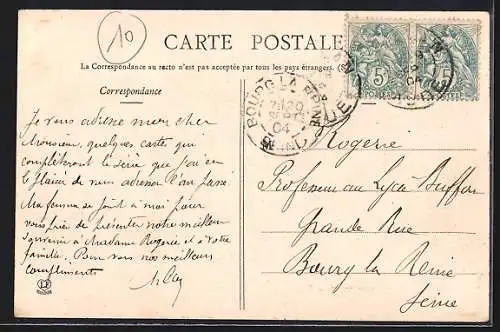 10
CARTE POSTALE
La Correspondance au recto n'est pas acceptée par tous les pays étrangers. (S
Correspondance
Je vous adresse mon cher
Monsieur, quelques cartes qui
complèteront la série que j'ai eu
le plaisir de vous adresser l'an passé.
Ma femme se joint à moi pour
vous prier de présenter notre meilleur
souvenir à Madame Rogerie et à votre
famille. Pour vous nos meilleurs
compliments
BOURG-LA-REINE
7 SEPT
04
5
5
POSTES
Rogerie
Professeur au Lycée Buffon
Grande Rue
Bourg la Reine
Seine